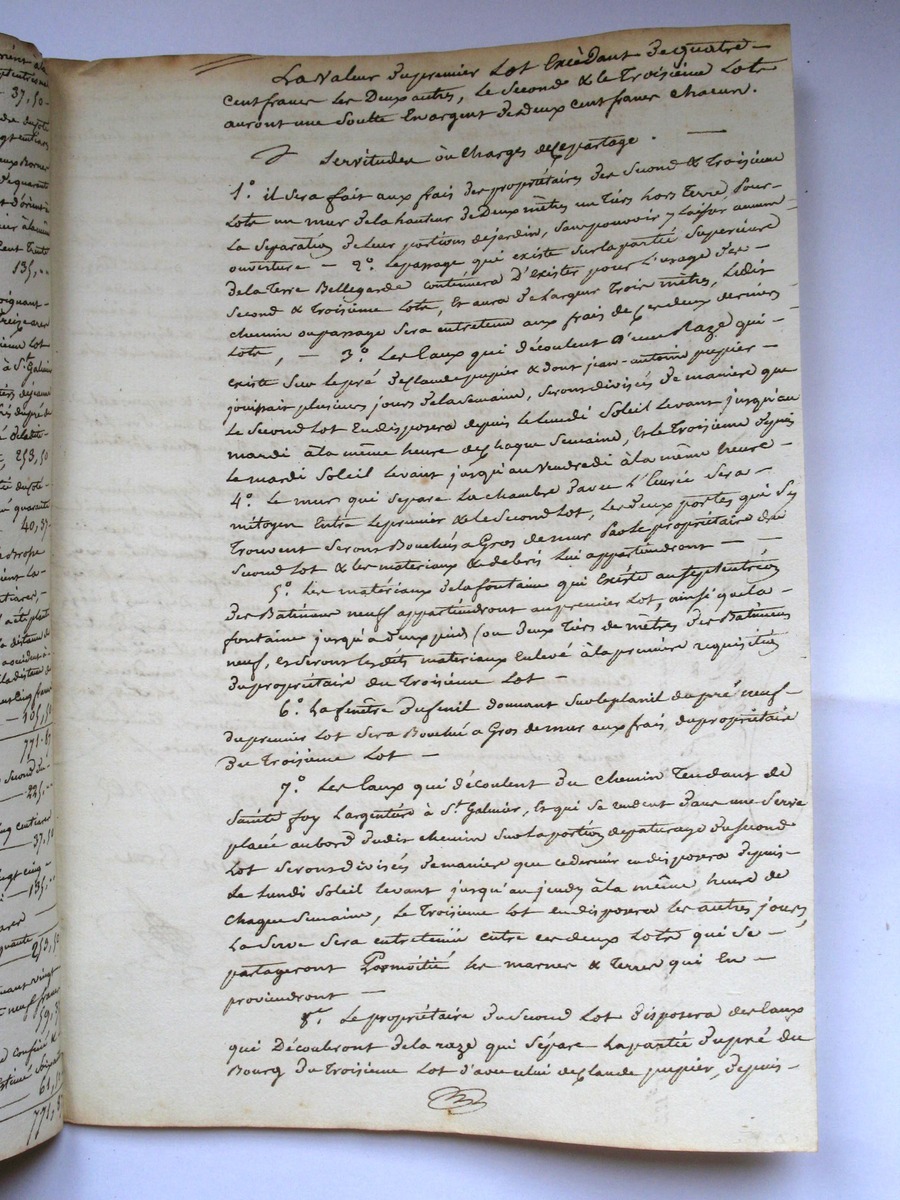 La valeur du premier Lot Excédant de quatre
cent francs les Deux autres, le second & le Troisième Lots
auront une soulte En argent de deux cent francs chacun.
Servitudes où charges de ce partage.
1.° il sera fait aux frais des propriétaires des second & Troisième
Lots un mur de la hauteur de Deux mètres un Tiers hors Terre, pour
La separation de leur portions de jardin, sans pouvoir y laisser aucune
ouverture — 2.° Le passage qui existe sur la partie superieure
de la Terre Bellegarde continuera D'exister pour L'usage des
Second & Troisième Lots, Et aura de Largeur Trois mètres, Ledit
chemin ou passage sera entretenu aux frais de ces deux derniers
Lots, — 3.° Les Eaux qui découlent D'une Raze qui
existe sur le pré de Claude pupier & dont jean-antoine pupier
jouissait plusieurs jours de la semaine, seront divisées de manière que
Le second Lot En disposera depuis le Lundi Soleil levant jusqu'au
mardi à la même heure de chaque semaine, Et le Troisième depuis
Le mardi soleil levant jusqu'au vendredi à la même heure —
4.° Le mur qui sépare La chambre d'avec L'Ecurie sera
mitoyen Entre le premier & le Second Lot, Les deux portes qui s'y
Trouvent seront Bouchés a Gros de mur par le propriétaire du
Second Lot & les materiaux & debris lui appartiendront —
5.° Les matériaux de la fontaine qui Existe au septentrion
des Batimens neufs appartiendront au premier Lot, ainsi que la
fontaine jusqu'a deux pieds (ou deux Tiers de mètres des Batimens
neufs, et seront lesdits materiaux Enlevé à la première requisition
du propriétaire du Troisième Lot —
6.° La fenêtre du fenil donnant sur le planil du pré neuf
du premier Lot sera Bouché a Gros de mur aux frais du propriétaire
du Troisième Lot —
7.° Les Eaux qui découlent du chemin Tendant de
Sainte foy Largentière à S.t Galmier, Et qui se rendent dans une Serve
placée au bord dudit chemin sur la portion de paturage du second
Lot seront divisées de manière que ce dernier en disposera depuis
Le Lundi Soleil levant jusqu'au jeudy à la même heure de
chaque semaine, Le Troisième Lot en disposera les autres jours,
La serve sera entretenüe entre ces deux Lots qui se
partageront Par moitié les marnes & Terres qui En
proviendront —
8.° Le propriétaire du Second Lot disposera des Eaux
qui Découleront de la raze qui sépare La partie du pré du
Bourg du Troisième Lot d'avec celui de Claude pupier, depuis